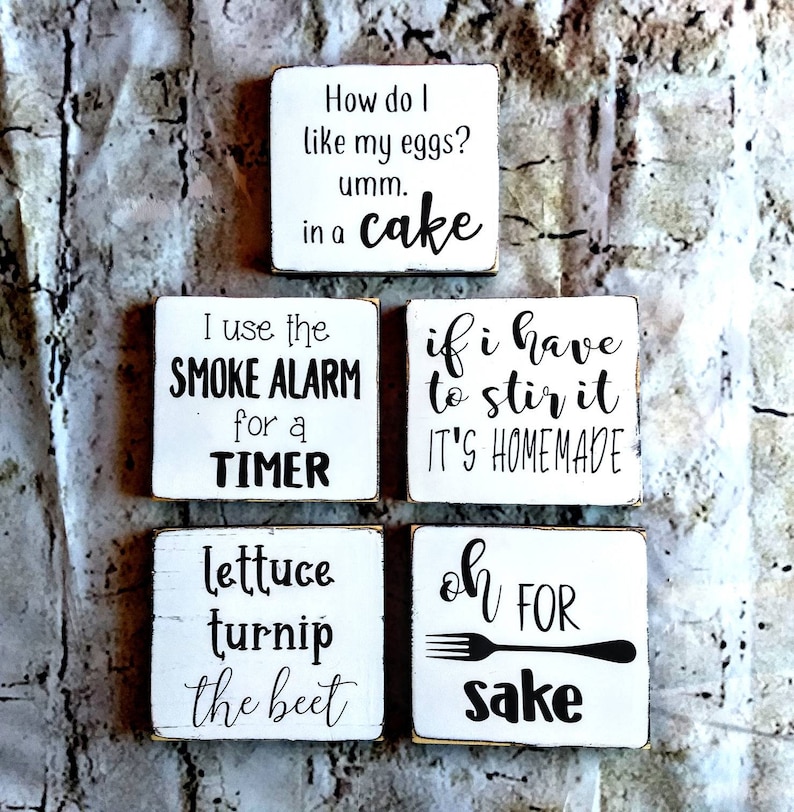 How do I
like my eggs?
umm.
in a cake
I use the
SMOKE ALARM
for a
TIMER
if i have
to stir it
IT'S HOMEMADE
lettuce
turnip
the beet
oh FOR
sake